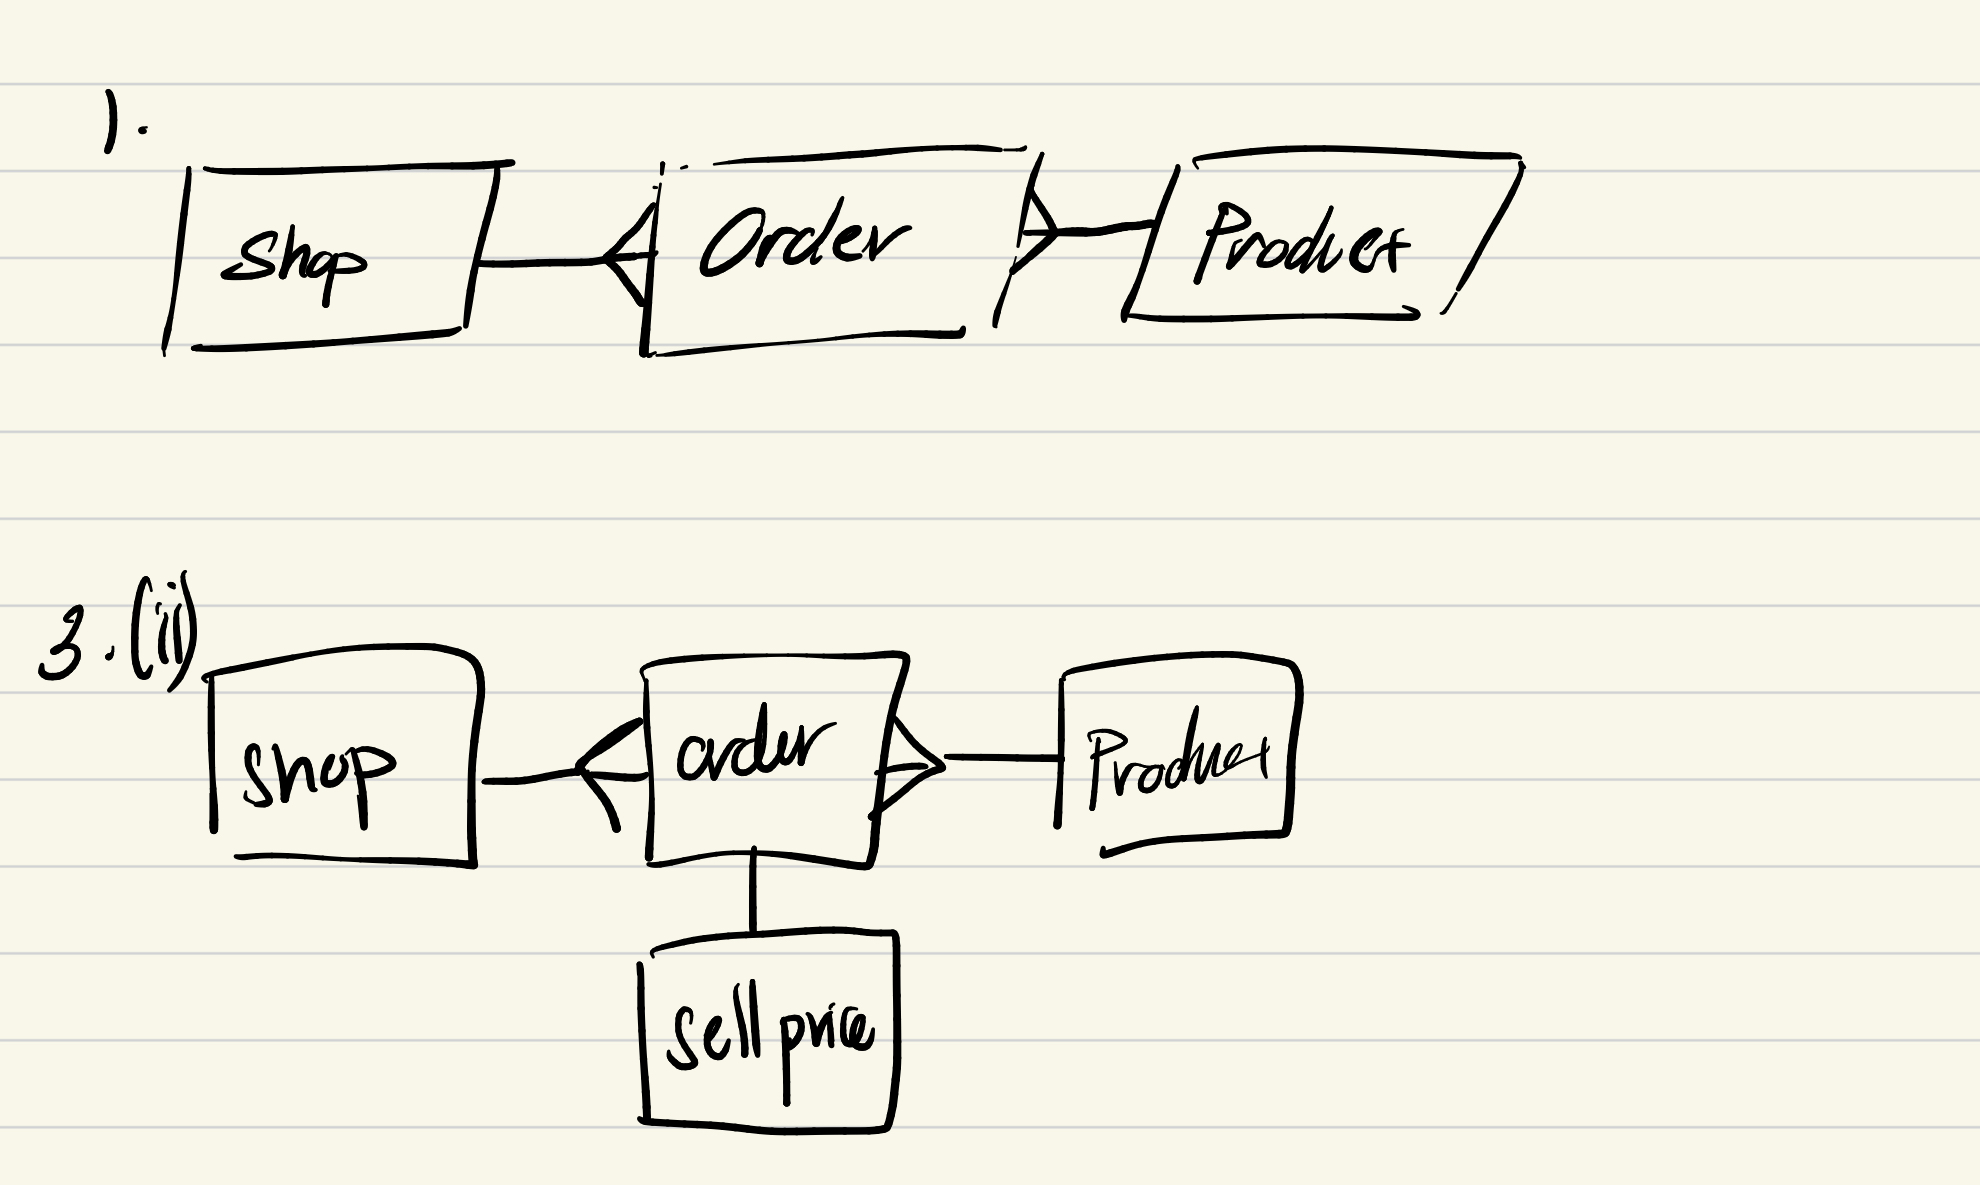 1.
Shop Order Product
3. (ii)
shop order Product
sell price